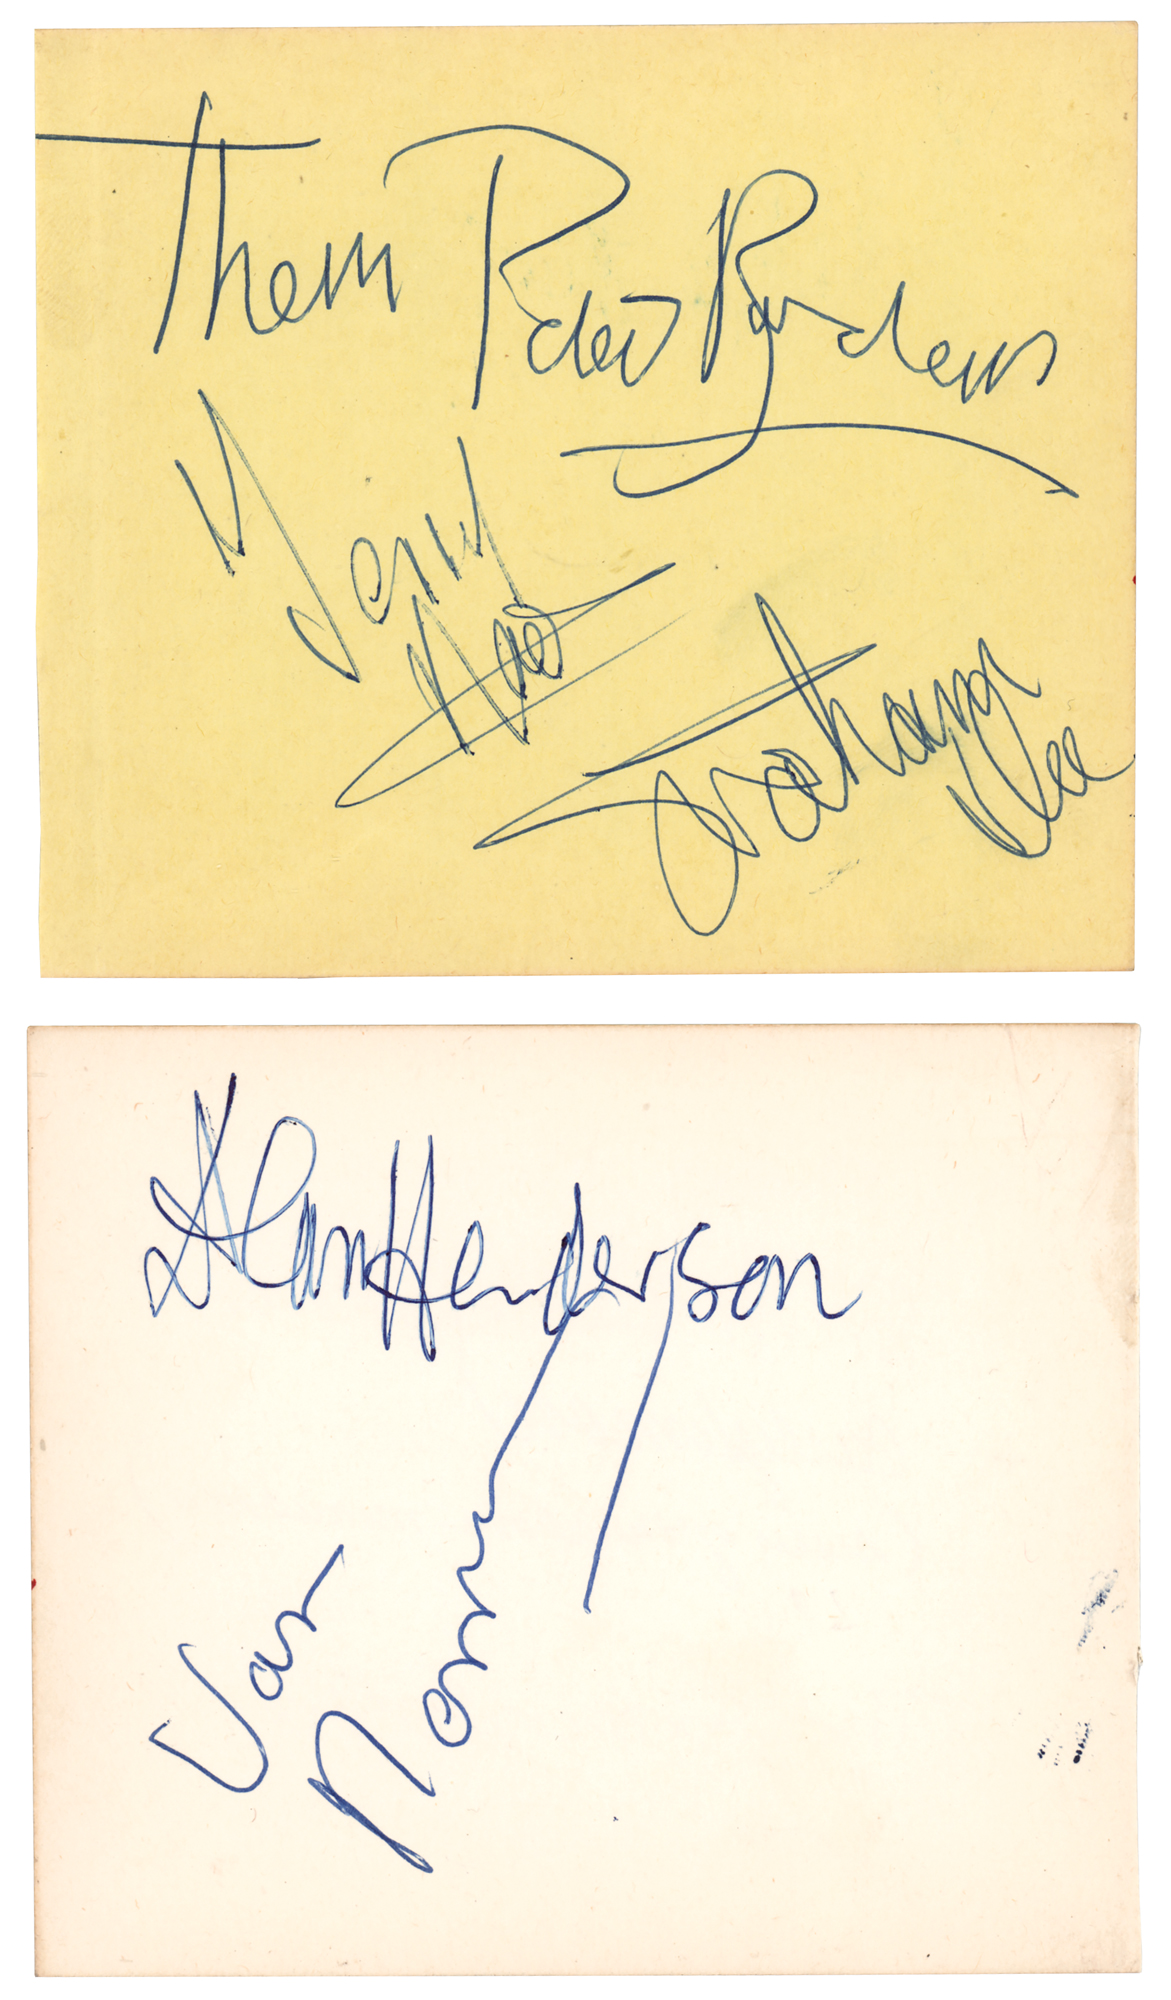 Them Peter Bardens
Terry
Lee
Alan Henderson
Van
Morrison